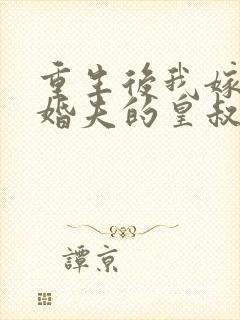 重生後我嫁
婚夫的皇叔
譚京